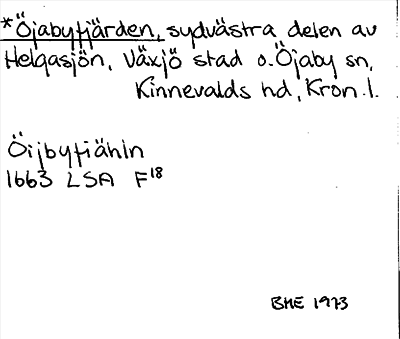 *Öjabyfjärden, sydvästra delen av
Helgasjön, Växjö stad o. Öjaby sn,
Kinnevalds hd, Kron. l.
Öijbyfiähln
1663 LSA F18
BME 1973